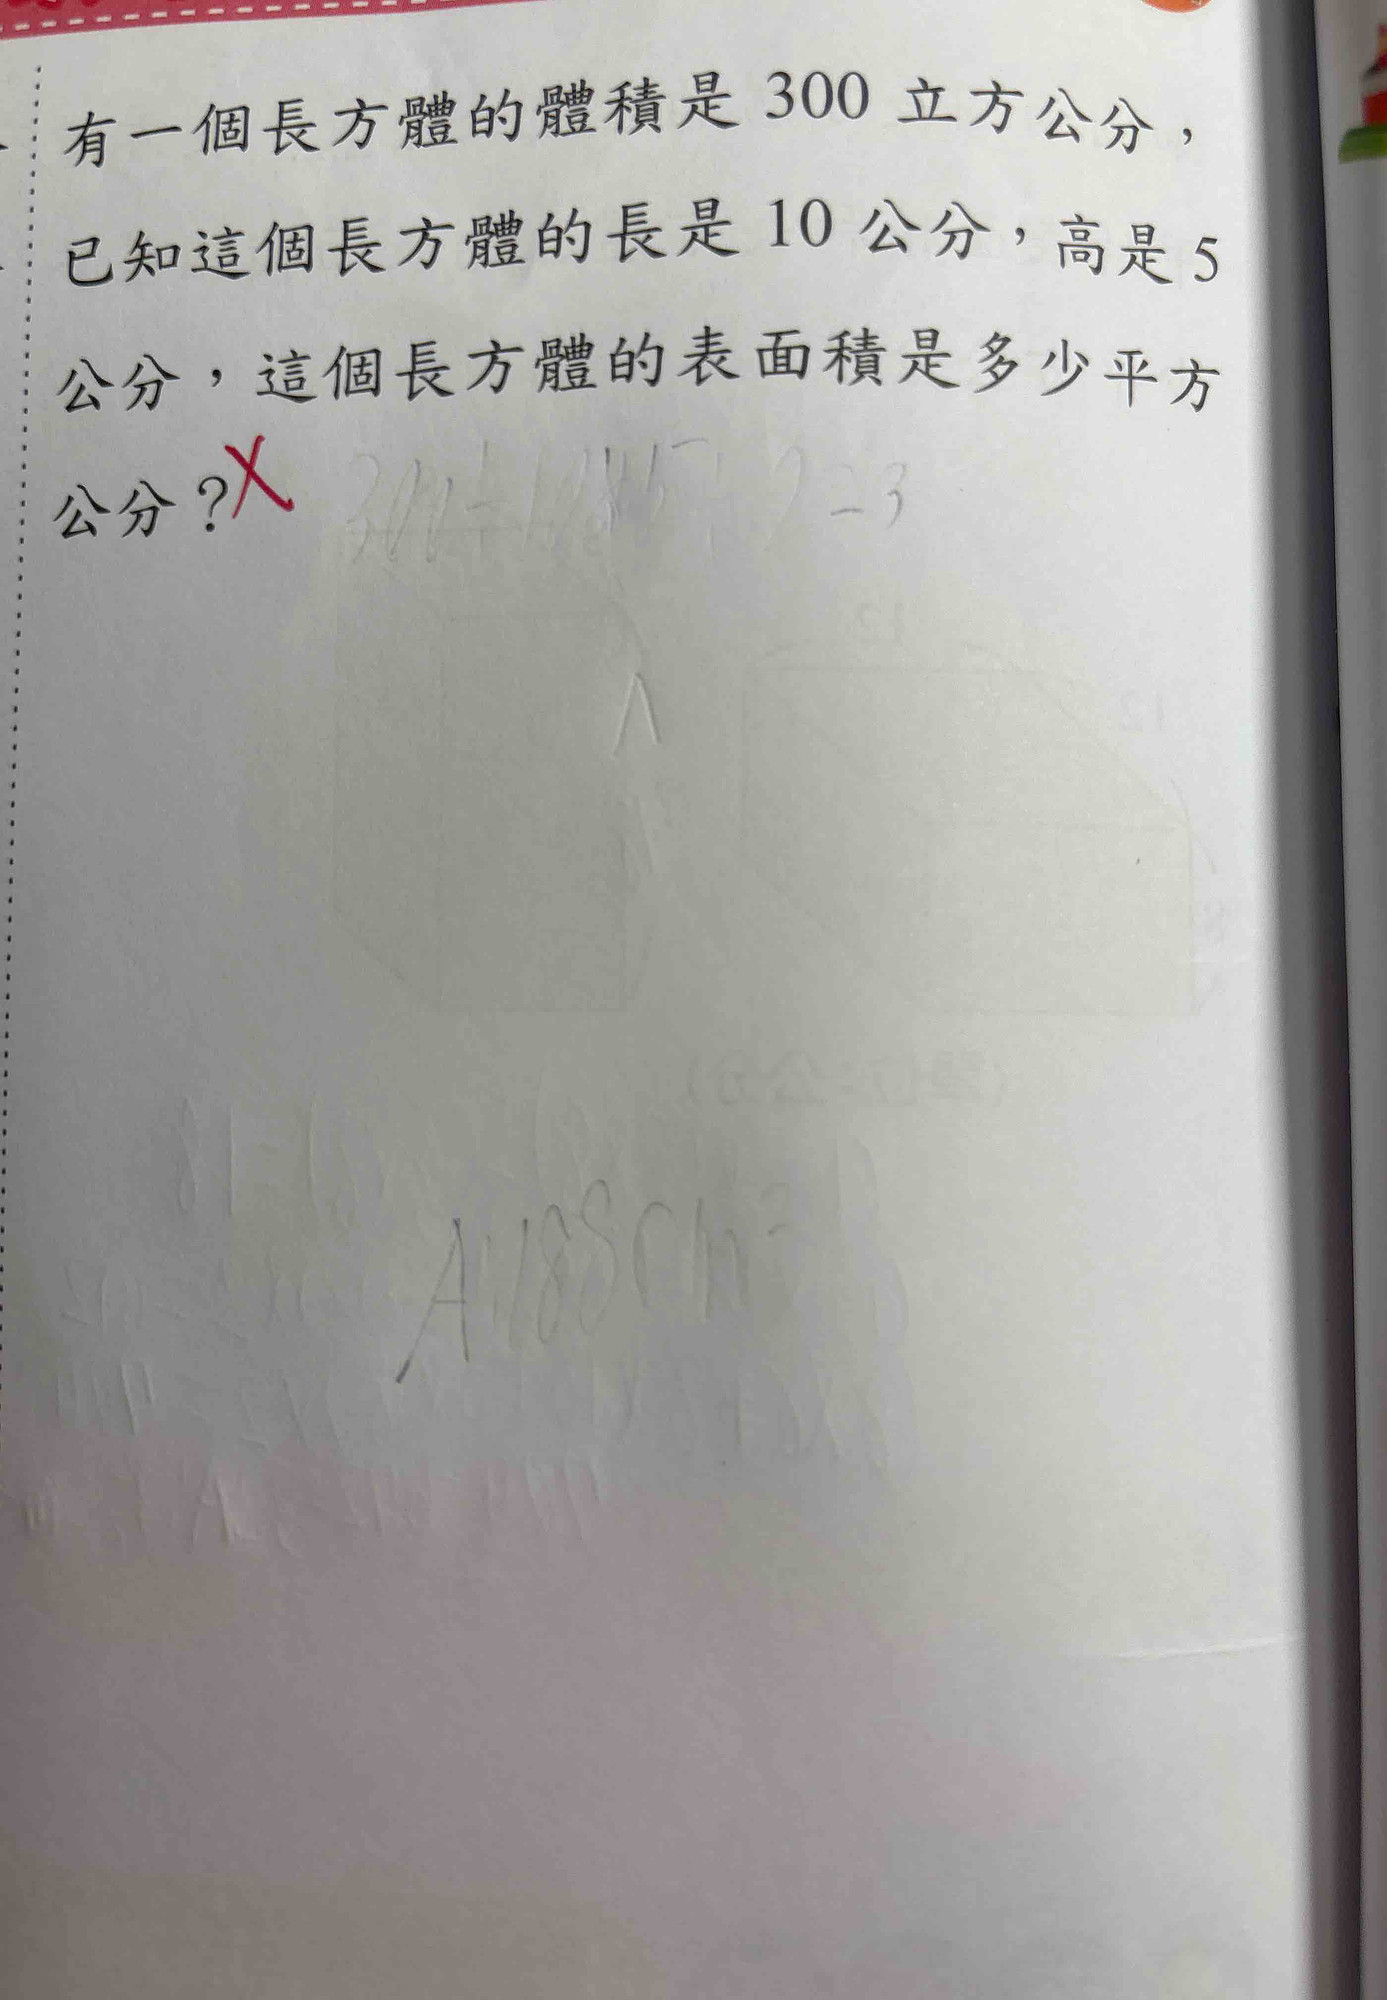 有一個長方體的體積是 300 立方公分，
已知這個長方體的長是 10 公分，高是 5
公分，這個長方體的表面積是多少平方
公分？X
2=3
A:188cm²